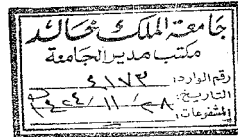 جامعة الملك خالد
مكتب مدير الجامعة
رقم الوارد: ٤١٧٣
التاريخ: ٢٨/١١/١٤٢٤
المشفوعات: